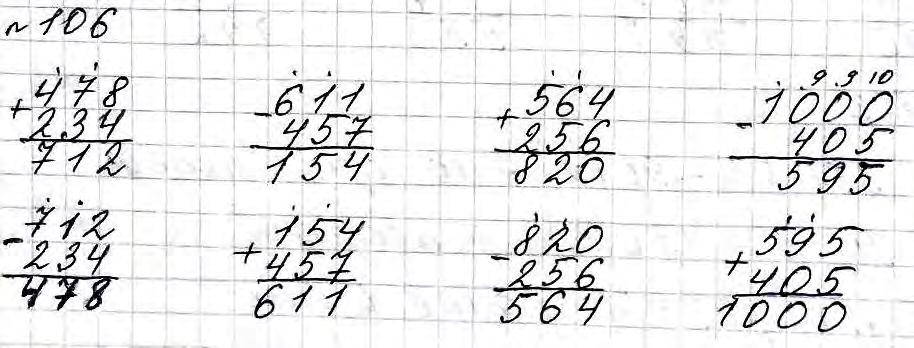 №106
478
+
234
712
611
-
457
154
564
+
256
820
9 9 10
1000
-
405
595
712
-
234
478
154
+
457
611
820
-
256
564
595
+
405
1000